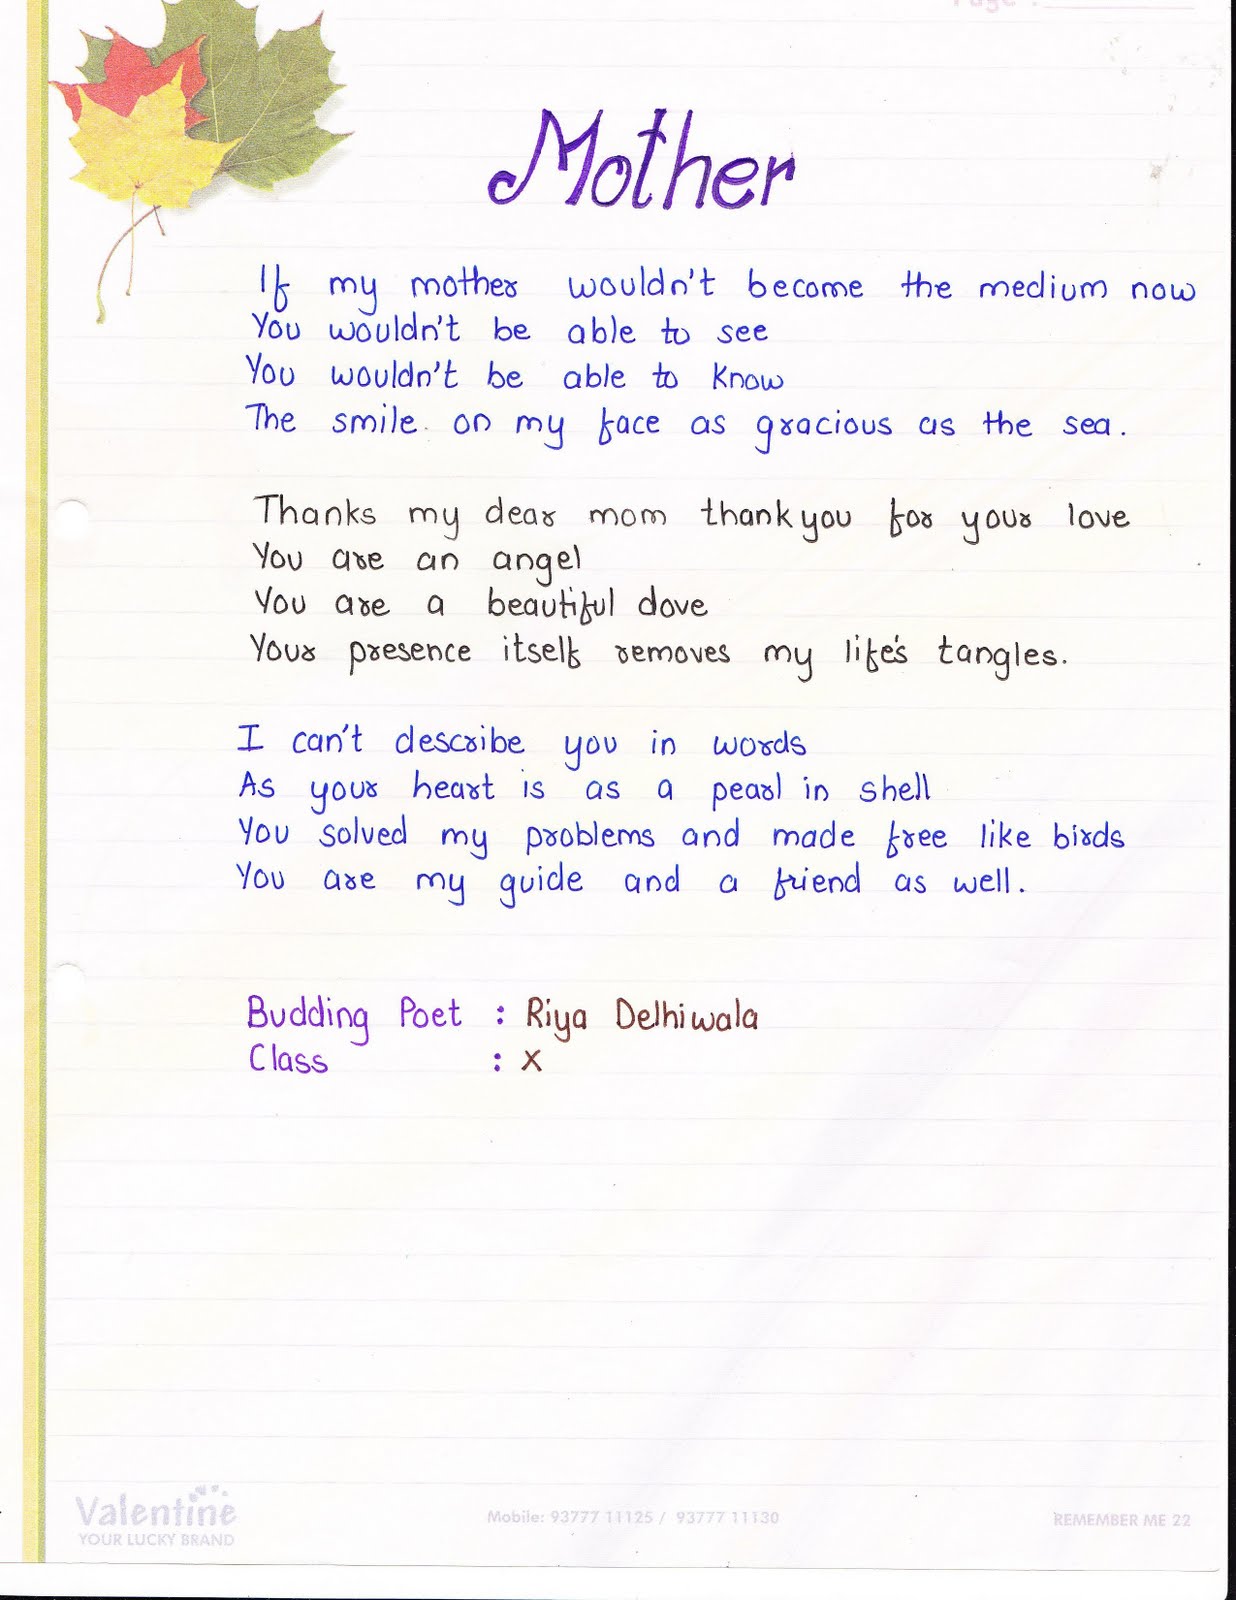 Page :
Mother
If my mother wouldn't become the medium now
You wouldn't be able to see
You wouldn't be able to know
The smile on my face as gracious as the sea.
Thanks my dear mom thank you for your love
You are an angel
You are a beautiful dove
Your presence itself removes my life's tangles.
I can't describe you in words
As your heart is as a pearl in shell
You solved my problems and made free like birds
You are my guide and a friend as well.
Budding Poet : Riya Delhiwala
Class : X
Valentine
YOUR LUCKY BRAND
Mobile: 93777 11125 / 93777 11130
REMEMBER ME 22